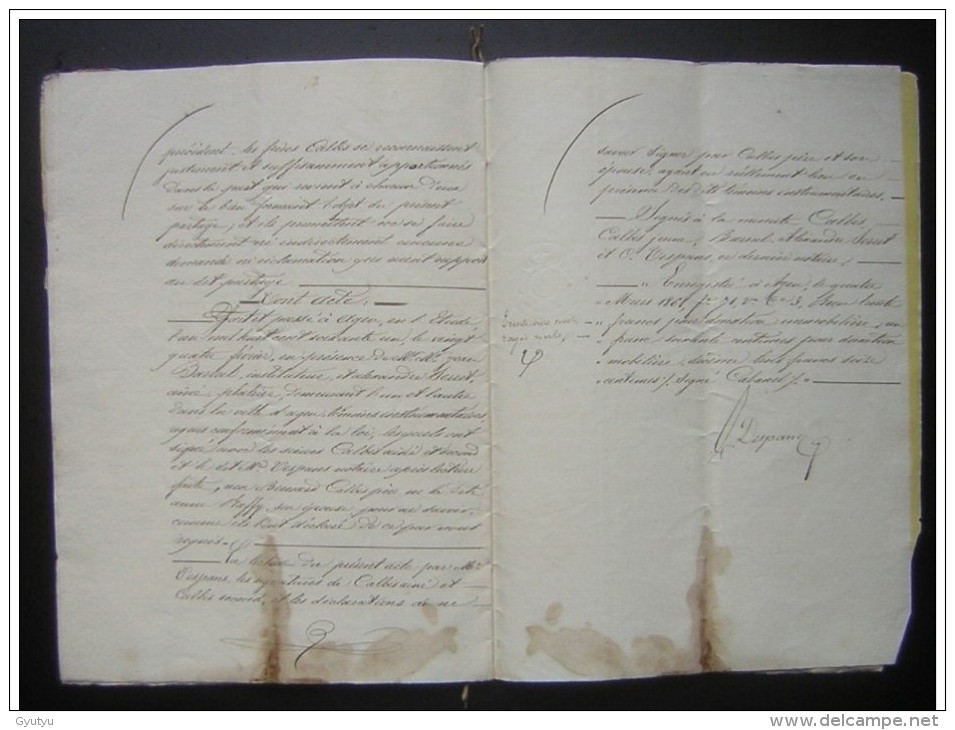 précédent. Les frères Calbès se reconnaissent
justement et suffisamment apportionnés
dans la part qui revient à chacun d'eux
sur le bien formant l'objet du présent
partage, et ils promettent ne se faire
directement ni indirectement aucune
demande ni réclamation qui aurait rapport
au dit partage
Dont acte,
Fait et passé à Agen, en l'Etude
l'an mil huit cent soixante un, le vingt
quatre février, en présence de Mr. Mr. Jean
Barral, instituteur, et Alexandre Serret,
ainé, platrier, demeurant l'un et l'autre
dans la ville d'Agen, témoins instrumentaires
requis conformément à la loi, lesquels ont
signé avec les sieurs Calbès ainé et second
et le dit Me Despans notaire après lecture
faite, non Bernard Calbès père ni la dite
anne Raffy, son épouse, pour ne savoir,
comme ils l'ont déclaré de ce par nous
requis.
La lecture du présent acte par Me
Despans, les signatures de Calbès ainé et
Calbès second, et les déclarations de ne
savoir signer par Calbès père et son
épouse, ayant eu réellement lieu en
présence des dits témoins instrumentaires.
Signés à la minute Calbès,
Calbès jeune, Barral, Alexandre Serret
et Despans, ce dernier notaire.
" Enregistré à Agen, le quatre
" Mars 1861, fo 71, Vo Ce 3, Reçu trente
" francs pour donation immobilière, un
" franc soixante centimes pour donation
" mobilière, décime trois francs seize
" centimes. Signé Cabanes
Despans
Gyutyu
www.delcampe.net